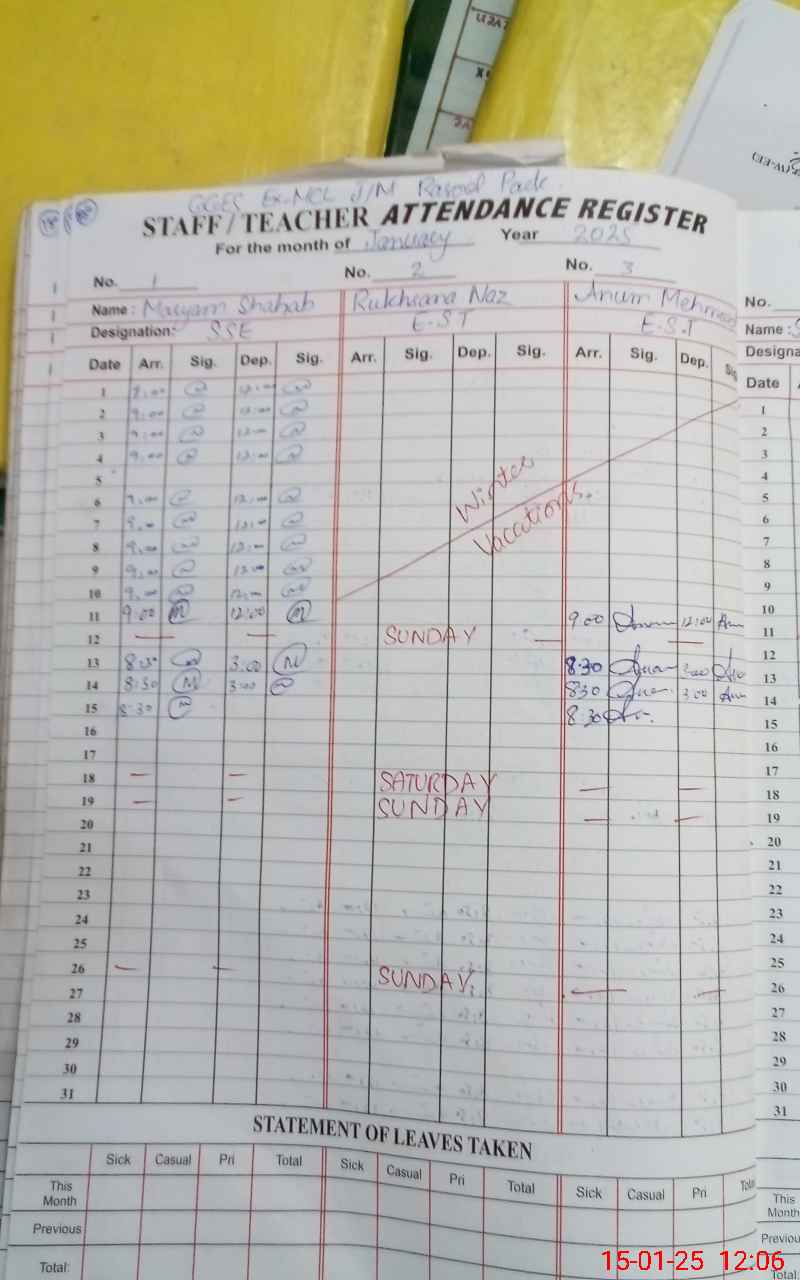 GGES Ex-MCL J/M Rasool Park.
STAFF / TEACHER ATTENDANCE REGISTER
For the month of January Year 2025
No. 1 No. 2 No. 3
Name: Maryam Shahab Rukhsana Naz Anum Mehmood
Designation: SSE E.S.T E.S.T
Date Arr. Sig. Dep. Sig. Arr. Sig. Dep. Sig. Arr. Sig. Dep. Sig.
1 9.00 12:00
2 9:00 12:00
3 9:00 12:00
4 9:00 12:00
5
6 9.00 12:00
7 9.00 12:00
8 9.00 12:00
9 9.00 12:00
10 9.00 12:00
Winter
Vacations.
11 9:00 12:00 9:00 12:00
12 — — SUNDAY — —
13 8:30 3:00 8:30 3:00
14 8:30 3:00 8:30 3:00
15 8:30 8:30
16
17
18 — — SATURDAY — —
19 — — SUNDAY — —
20
21
22
23
24
25
26 — — SUNDAY — —
27
28
29
30
31
STATEMENT OF LEAVES TAKEN
Sick Casual Pri Total Sick Casual Pri Total Sick Casual Pri
This
Month
Previous
Total:
No.
Name:
Date
1
2
3
4
5
6
7
8
9
10
11
12
13
14
15
16
17
18
19
20
21
22
23
24
25
26
27
28
29
30
31
This
Month
Total
15-01-25 12:06